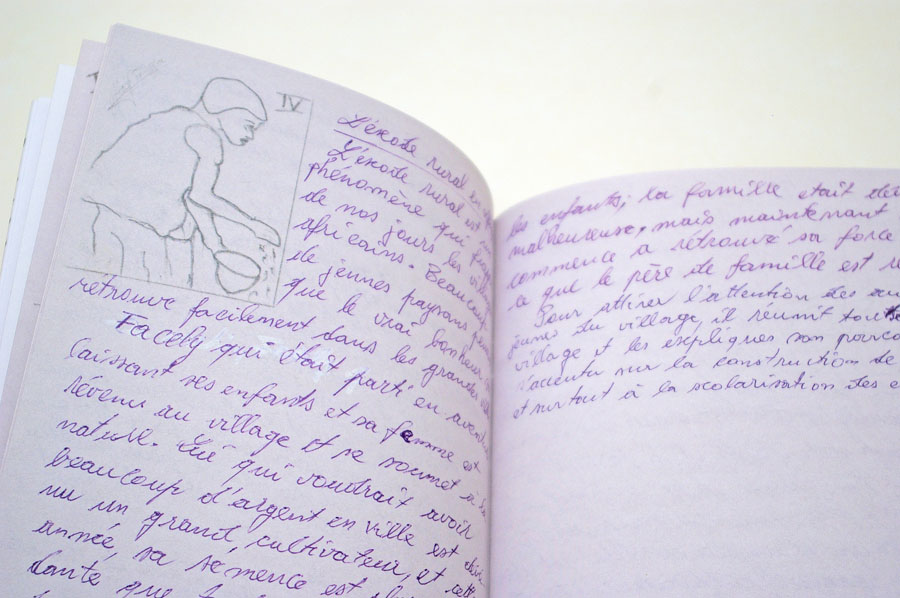 IV
L'éxode rural en
L'éxode rural est un
phénomène qui
de nos jours les
africains. Beaucoup
de jeunes paysans
que le vrai bonheur se
rétrouve facilement dans les grandes
Facély qui était parti en
laissant ses enfants et sa femme est
révenu au village et se soumet à la
nature. Lui qui voudrait avoir
beaucoup d'argent en ville est
nu un grand cultivateur, et cette
année, sa sémence est
dante que
les enfants; la famille était
malheureuse, mais maintenant
commence a rétrouvé sa force
ce que le père de famille est
Pour attirer l'attention des
jeunes du village, il réunit
village et les expliques son
l'accentu sur la construction de
et surtout à la scolarisation des